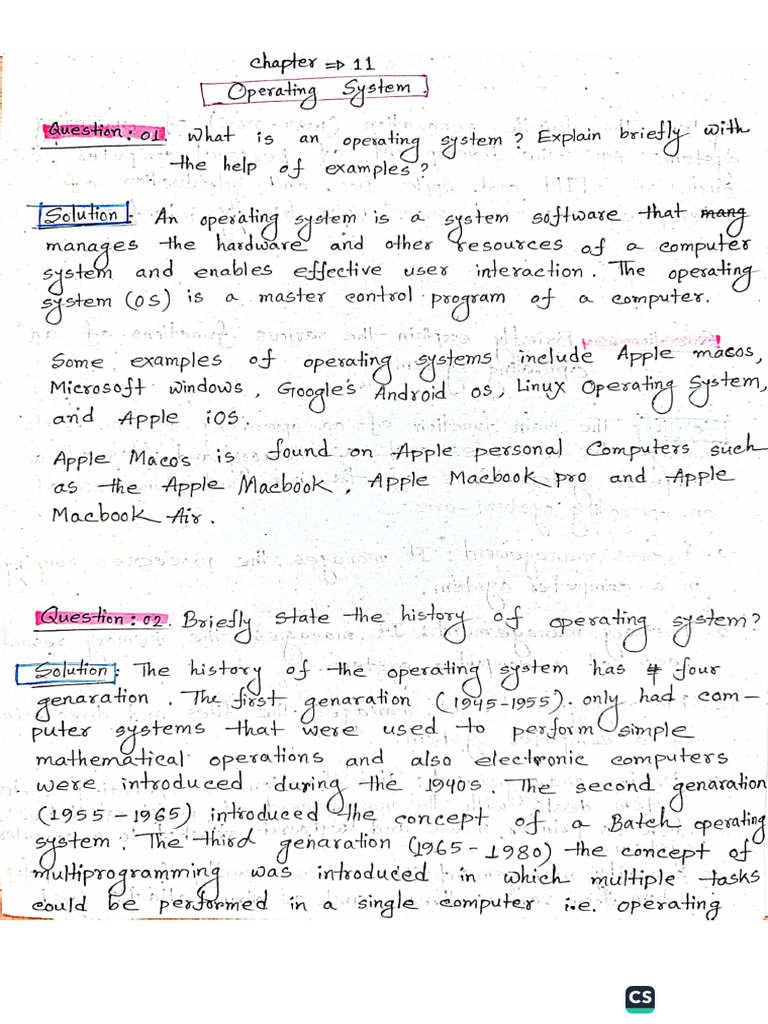 chapter ⇒ 11
Operating System.
Question: 01. What is an operating system? Explain briefly with
the help of examples?
Solution: An operating system is a system software that mang
manages the hardware and other resources of a computer
system and enables effective user interaction. The operating
system (OS) is a master control program of a computer.
Some examples of operating systems include Apple macos,
Microsoft windows, Google's Android os, Linux Operating System,
and Apple iOS.
Apple Macos is found on Apple personal Computers such
as the Apple Macbook, Apple Macbook pro and Apple
Macbook Air.
Question: 02. Briefly state the history of operating system?
Solution: The history of the operating system has 4 four
genaration. The first genaration (1945-1955). only had com-
puter systems that were used to perform simple
mathematical operations and also electronic computers
were introduced during the 1940s. The second genaration
(1955-1965) introduced the concept of a Batch operating
system. The third genaration (1965-1980) the concept of
multiprogramming was introduced in which multiple tasks
could be performed in a single computer i.e. operating
CS